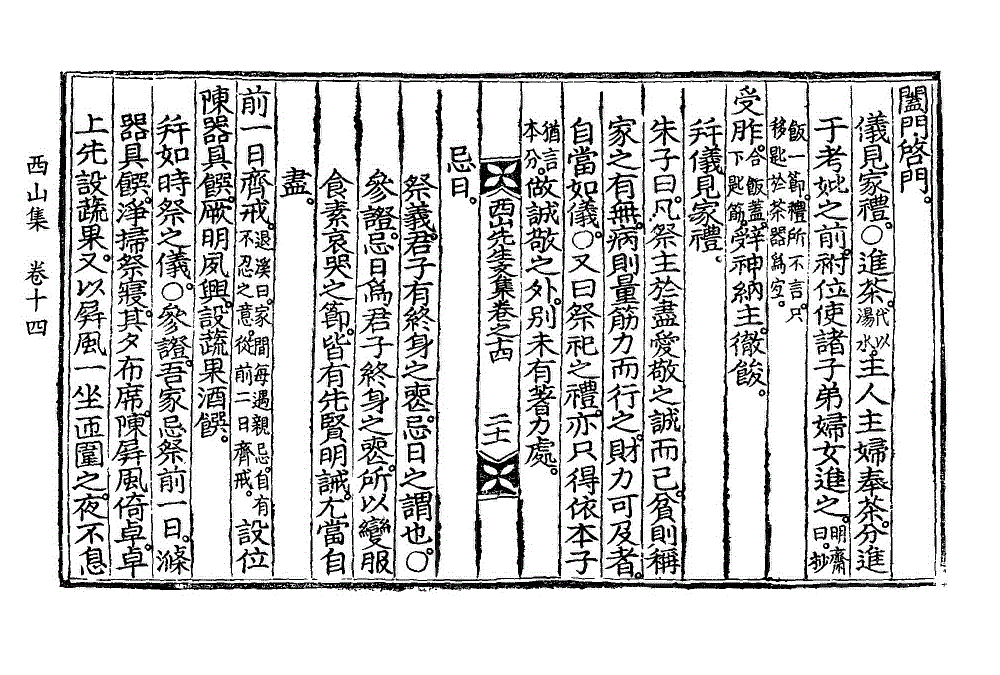 闔門啓門。
儀見家禮。○進茶。代以湯水。主人主婦奉茶。分進
于考妣之前。祔位使諸子弟婦女進之。明齋曰。抄
飯一節。禮所不言。只移匙於茶器爲宜。
受胙。合飯蓋。下匙筯。辭神納主。徹餕。
幷儀見家禮。
朱子曰。凡祭主於盡愛敬之誠而已。貧則稱
家之有無。病則量筋力而行之。財力可及者。
自當如儀。○又曰祭祀之禮。亦只得依本子
猶言本分。做誠敬之外。別未有著力處。
西山先生文集卷之十四 二十一
忌日。
祭義。君子有終身之喪。忌日之謂也。○
參證。忌日爲君子終身之喪。所以變服
食素哀哭之節。皆有先賢明誡。尤當自
盡。
前一日齊戒。退溪曰。家間每遇親忌。自有不忍之意。從前二日齊戒。設位
陳器具饌。厥明夙興。設蔬果酒饌。
幷如時祭之儀。○參證。吾家忌祭前一日。滌
器具饌。淨掃祭寢。其夕布席。陳屛風倚卓。卓
上先設蔬果。又以屛風一坐匝圍之。夜不息
西山集 卷十四